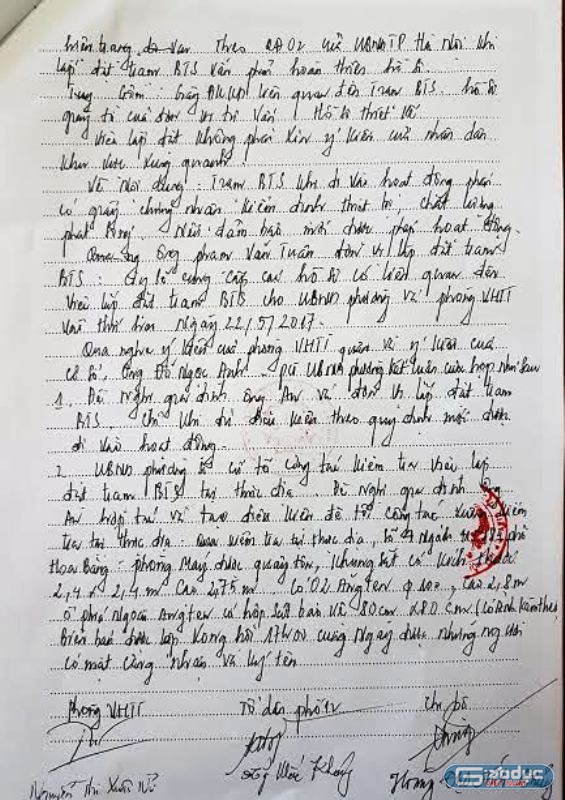 hiện trạng theo QĐ02 của UBND TP Hà Nội khi
lắp đặt trạm BTS vẫn phải hoàn thiện hồ sơ.
gồm: Giấy ĐKKD liên quan đến Trạm BTS. hồ sơ
giấy tờ của đơn vị tư vấn, Hồ sơ thiết kế
Việc lắp đặt không phải xin ý kiến của nhân dân
khu vực xung quanh.
Về nội dung: Trạm BTS khi đi vào hoạt động phải
có giấy chứng nhận kiểm định thiết bị, chất lượng
phát sóng. Nếu đảm bảo mới được phép hoạt động.
ông phạm Văn Tuân đơn vị lắp đặt trạm
BTS: sẽ cung cấp các hồ sơ có liên quan đến
việc lắp đặt trạm BTS cho UBND phường và phòng VHTT
thời hạn Ngày 22/5/2017.
Qua nghe ý kiến của phòng VHTT quận và ý kiến của
cơ sở, Ông Đỗ Ngọc Anh - PCT UBND phường kết luận cuộc họp như sau
1. Đề Nghị gia đình ông An và đơn vị lắp đặt trạm
BTS. Chỉ khi đủ điều kiện theo quy định mới được
đi vào hoạt động.
2 UBND phường sẽ cử tổ công tác kiểm tra việc lắp
đặt trạm BTS tại thực địa. Đề nghị gia đình ông
An hợp tác và tạo điều kiện để tổ công tác xuống kiểm
tra tại thực địa: Qua kiểm tra tại thực địa, số 7 ngách phố
Hoa Bằng: - phòng máy được quây tôn, khung sắt có kích thước
2,4 x 2,4 m cao 2,75 m. Có 02 Ăngten φ 100, cao 2,8 m
ở phía ngoài Ăngten có hộp sắt bảo vệ 80 cm x 80 cm (có ảnh kèm theo)
Biên bản được lập xong hồi 17h00 cùng ngày được những người
có mặt công nhận và ký tên
phòng VHTT Tổ dân phố 12 Chi bộ
Nguyễn Thị Xuân
giáoduc